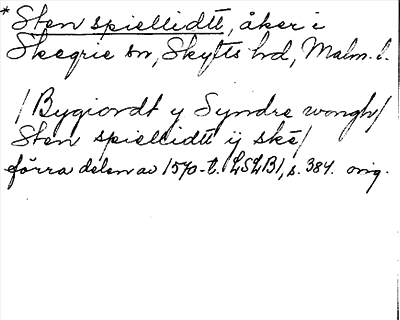 * Sten spiellidtt, åker i
Skegrie sn, Skytts hd, Malm. l.
/Bygiordt y Syndre wongh/
Sten spiellidtt ij ske/
förra delen av 1570-t. LSLB1, s. 384. orig.